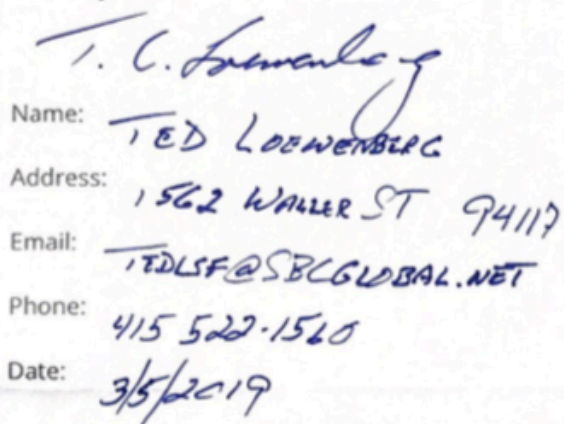 T. C. Loewenberg
Name: TED LOEWENBERG
Address: 1562 WALLER ST 94117
Email: TEDLSF@SBCGLOBAL.NET
Phone: 415 522-1560
Date: 3/5/2019